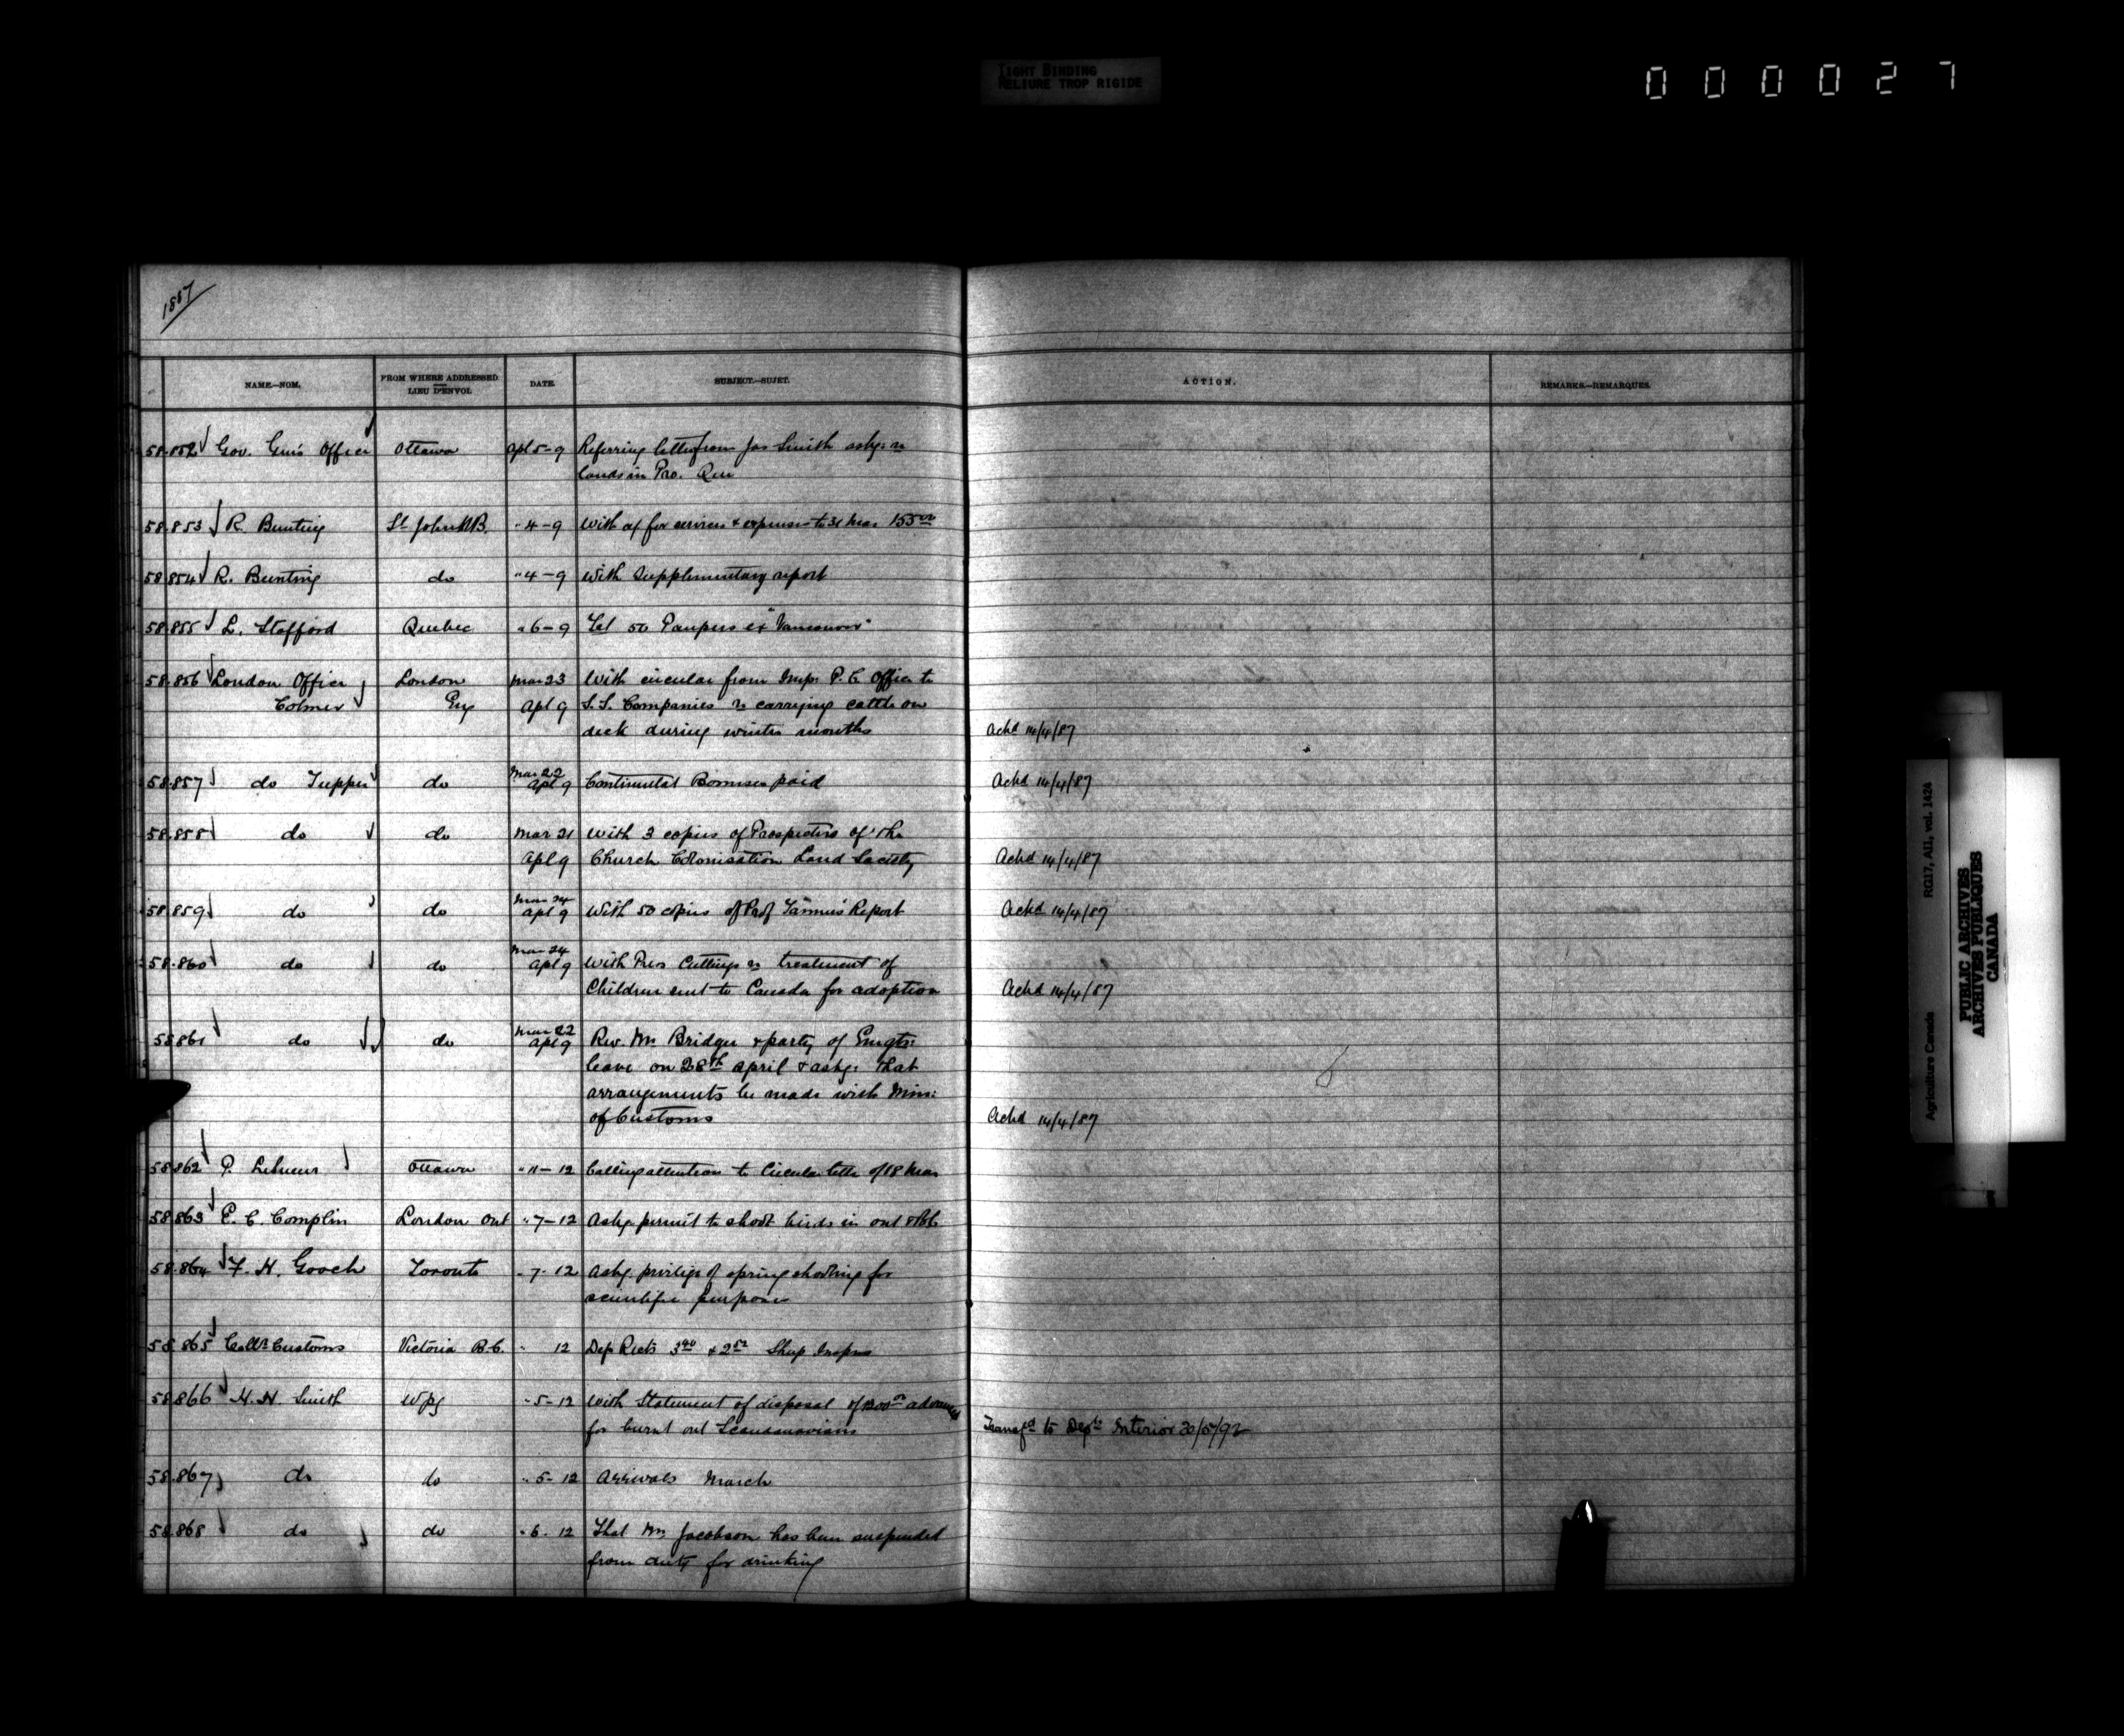 TIGHT BINDING
RELIURE TROP RIGIDE
000027
1887
NAME.—NOM. FROM WHERE ADDRESSED LIEU D'ENVOI. DATE. SUBJECT.—SUJET. ACTION. REMARKS.—REMARQUES.
58.852 Gov. Gen's Office Ottawa Apl 5-9 Referring letter from Jas Smith askg re
lands in Pro. Que
58.853 R. Bunting St John N.B. " 4-9 With a/c for services & expenses to 31 Mar 155 00
58.854 R. Bunting do " 4-9 With Supplimentary report
58.855 L. Stafford Quebec " 6-9 Tel 50 Paupers ex "Vancouver"
58.856 London Office London Mar 23 With circular from Impl P.C. Office to
Colmer Eng Apl 9 S.S. Companies re carrying cattle on
deck during winter months Ackd 14/4/87
58.857 do Tupper do Mar 22 Apl 9 Continental Bonuses paid Ackd 14/4/87
58.858 do do Mar 21 With 3 copies of Prospectus of the
Apl 9 Church Colonisation Land Society Ackd 14/4/87
58.859 do do Mar 24 Apl 9 With 50 copies of Prof Tanner's Report Ackd 14/4/87
58.860 do do Mar 24 Apl 9 With Press Cuttings re treatment of
Children sent to Canada for adoption Ackd 14/4/87
58.861 do do Mar 22 Apl 9 Rev. Mr Bridger & party of Emgts:
leave on 28th April & askg: that
arrangements be made with Min:
of Customs Ackd 14/4/87
58.862 P. Lesueur Ottawa " 11-12 Calling attention to Circular letter of 18 Mar
58.863 E. C. Complin London Ont " 7-12 Askg permit to shoot birds in Ont
58.864 F. H. Gooch Toronto " 7-12 Askg privilege of spring shooting for
scientific purposes
58.865 Collr Customs Victoria B.C. " 12 Dep Rects & Sheep Inspn
58.866 H. H. Smith Wpg " 5-12 With Statement of disposal of advanced
for burnt out Scandanavians Transfd to Dept Interior 30/5/92
58.867 do do " 5-12 Arrivals March
58.868 do do " 6-12 That Mr Jacobson has been suspended
from duty for drinking
Agriculture Canada RG17, AII, vol. 1424
PUBLIC ARCHIVES
ARCHIVES PUBLIQUES
CANADA